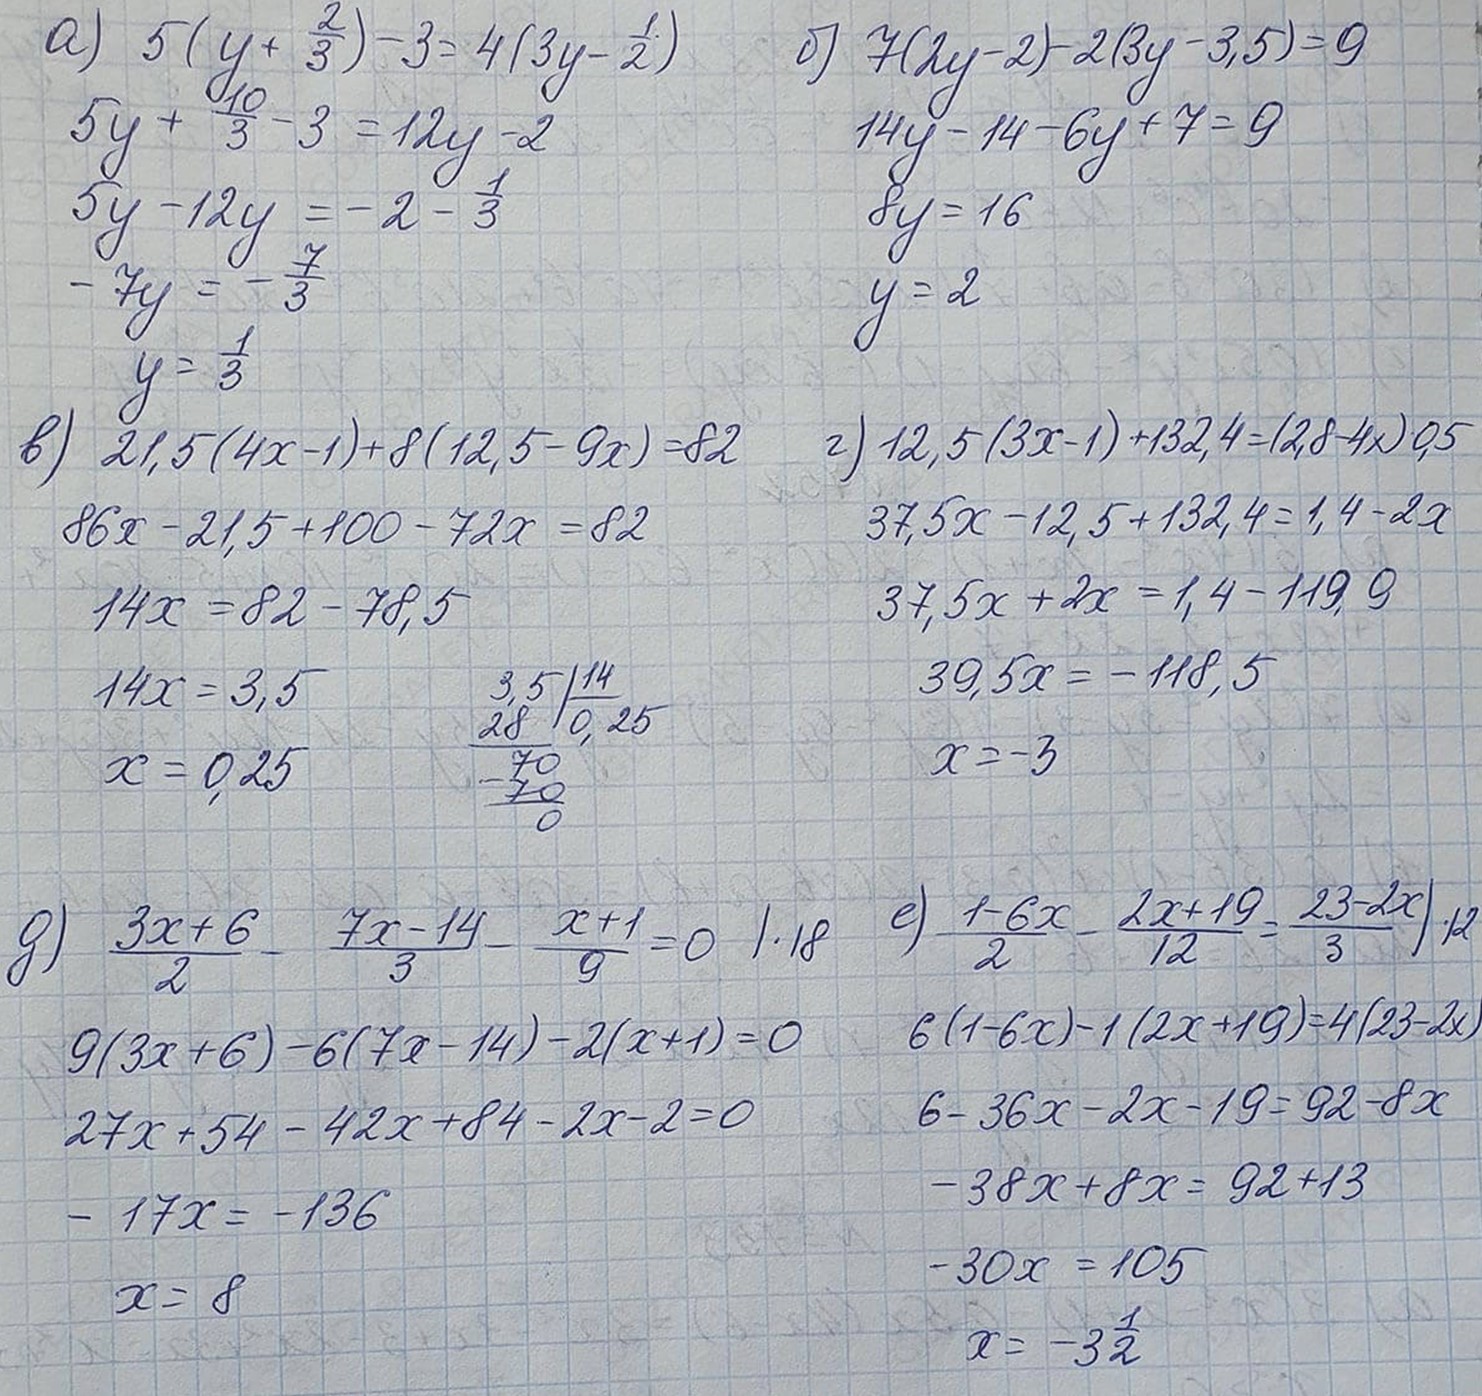 а) 5(y + 2/3) - 3 = 4(3y - 1/2)
5y + 10/3 - 3 = 12y - 2
5y - 12y = - 2 - 1/3
- 7y = - 7/3
y = 1/3
б) 7(2y - 2) - 2(3y - 3,5) = 9
14y - 14 - 6y + 7 = 9
8y = 16
y = 2
в) 21,5(4x - 1) + 8(12,5 - 9x) = 82
86x - 21,5 + 100 - 72x = 82
14x = 82 - 78,5
14x = 3,5
x = 0,25
3,5 | 14
28 | 0,25
70
- 70
0
г) 12,5(3x - 1) + 132,4 = (2,8 - 4x) 0,5
37,5x - 12,5 + 132,4 = 1,4 - 2x
37,5x + 2x = 1,4 - 119,9
39,5x = - 118,5
x = -3
д) (3x + 6)/2 - (7x - 14)/3 - (x + 1)/9 = 0 | · 18
9(3x + 6) - 6(7x - 14) - 2(x + 1) = 0
27x + 54 - 42x + 84 - 2x - 2 = 0
- 17x = -136
x = 8
е) (1 - 6x)/2 - (2x + 19)/12 = (23 - 2x)/3 | · 12
6(1 - 6x) - 1(2x + 19) = 4(23 - 2x)
6 - 36x - 2x - 19 = 92 - 8x
- 38x + 8x = 92 + 13
- 30x = 105
x = -3 1/2